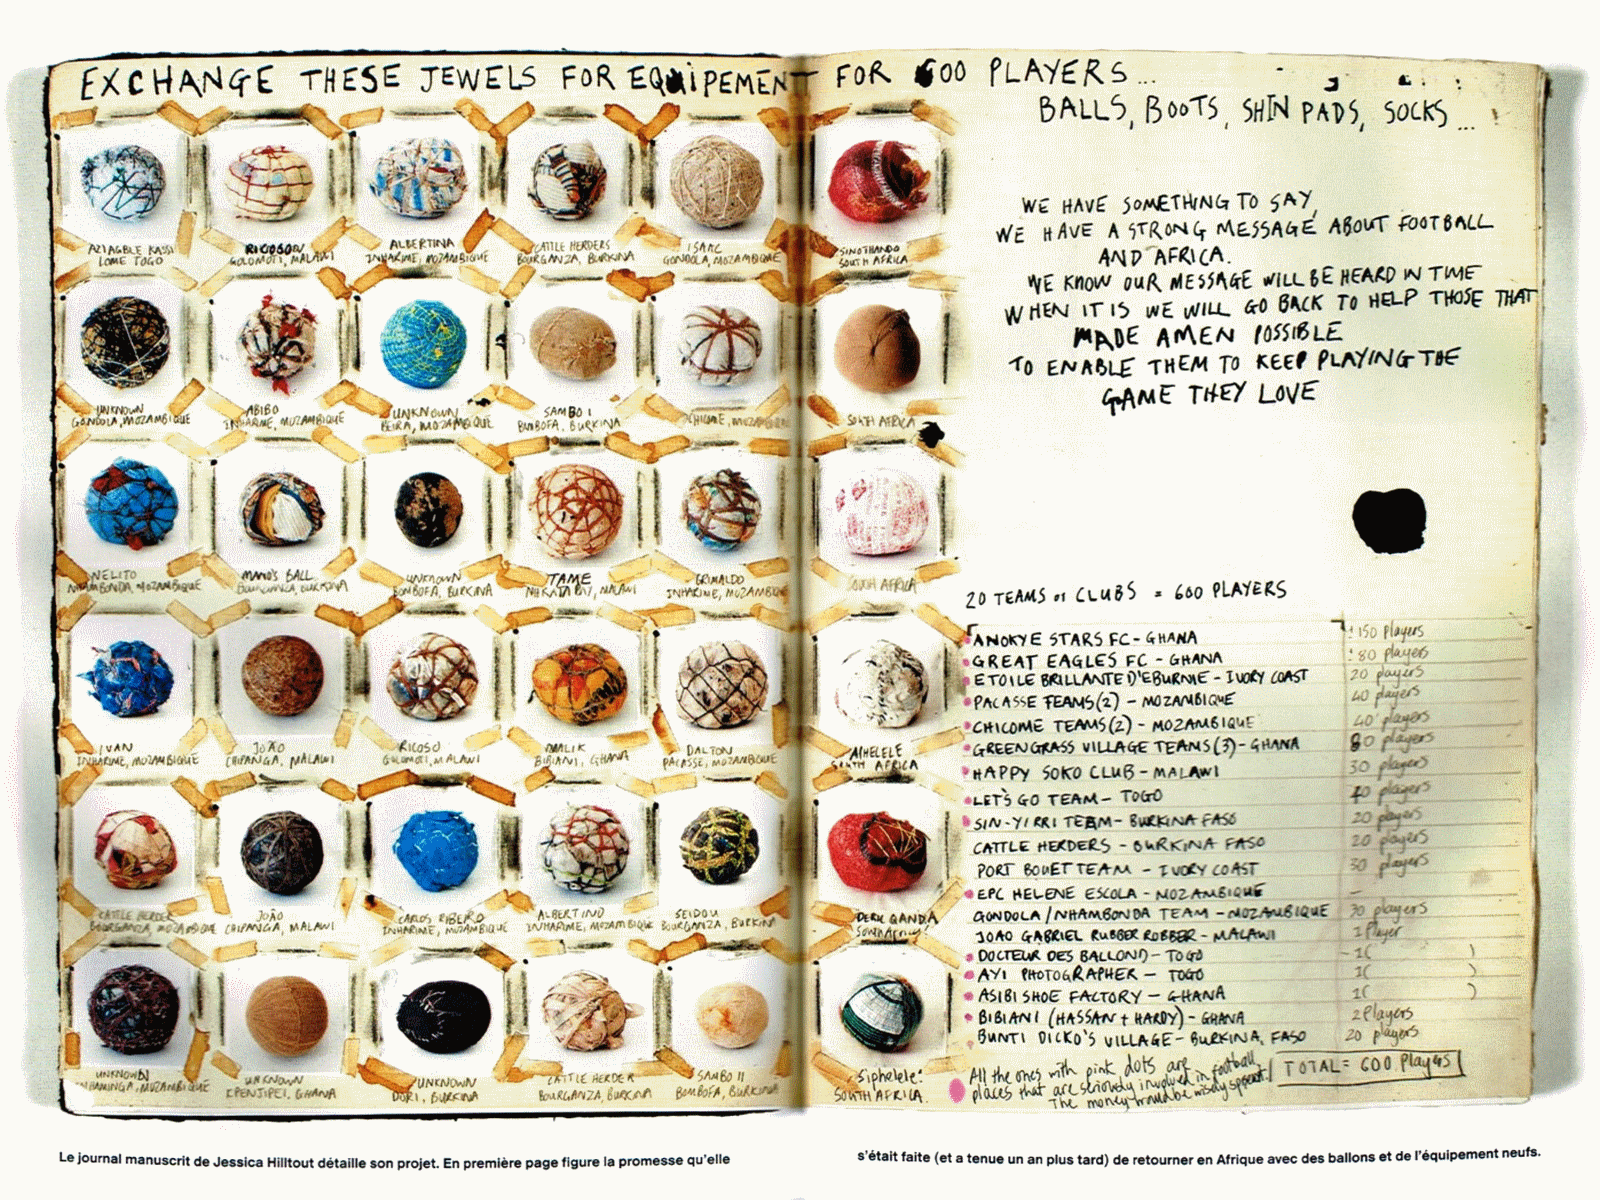 EXCHANGE THESE JEWELS FOR EQUIPEMENT FOR 600 PLAYERS...
BALLS, BOOTS, SHIN PADS, SOCKS...
AZIAGBLE KASSI
LOME TOGO
RICOSON
GOLOMOTI, MALAWI
ALBERTINA
INHARIME, MOZAMBIQUE
CATTLE HERDERS
BOURGANZA, BURKINA
ISAAC
GONDOLA, MOZAMBIQUE
SINOTHANDO
SOUTH AFRICA
UNKNOWN
GONDOLA, MOZAMBIQUE
ABIBO
INHARIME, MOZAMBIQUE
UNKNOWN
BEIRA, MOZAMBIQUE
SAMBO I
BOMBOFA, BURKINA
CHICOME, MOZAMBIQUE
SOUTH AFRICA
NELITO
NHAMBONDA, MOZAMBIQUE
MANO'S BALL
BURKINA
UNKNOWN
BOMBOFA, BURKINA
TAME
NKHATA BAY, MALAWI
GRIMALDO
INHARIME, MOZAMBIQUE
SOUTH AFRICA
IVAN
INHARIME, MOZAMBIQUE
JOÃO
CHIPANGA, MALAWI
RICOSO
GOLOMOTI, MALAWI
MALIK
BIBIANI, GHANA
DALTON
PACASSE, MOZAMBIQUE
ATHELELE
SOUTH AFRICA
CATTLE HERDER
BOURGANZA,
JOÃO
CHIPANGA, MALAWI
CARLOS RIBEIRO
INHARIME, MOZAMBIQUE
ALBERTINO
INHARIME, MOZAMBIQUE
SEIDOU
BOURGANZA, BURKINA
QANDA
South Africa
UNKNOWN
INHAMINGA, MOZAMBIQUE
UNKNOWN
KPENJIPEI, GHANA
UNKNOWN
DORI, BURKINA
CATTLE HERDER
BOURGANZA, BURKINA
SAMBO II
BOMBOFA, BURKINA
Siphelele:
SOUTH AFRICA.
WE HAVE SOMETHING TO SAY,
WE HAVE A STRONG MESSAGE ABOUT FOOTBALL
AND AFRICA.
WE KNOW OUR MESSAGE WILL BE HEARD IN TIME
WHEN IT IS WE WILL GO BACK TO HELP THOSE THAT
MADE AMEN POSSIBLE
TO ENABLE THEM TO KEEP PLAYING THE
GAME THEY LOVE
20 TEAMS or CLUBS = 600 PLAYERS
ANOKYE STARS FC - GHANA ± 150 Players
GREAT EAGLES FC - GHANA ± 80 players
ETOILE BRILLANTE D'EBURNIE - IVORY COAST 20 players
PACASSE TEAMS (2) - MOZAMBIQUE 40 players
CHICOME TEAMS (2) - MOZAMBIQUE 40 players
GREENGRASS VILLAGE TEAMS (3) - GHANA 80 players
HAPPY SOKO CLUB - MALAWI 30 players
LET'S GO TEAM - TOGO 40 players
SIN-YIRRI TEAM - BURKINA FASO 20 players
CATTLE HERDERS - BURKINA FASO 20 players
PORT BOUET TEAM - IVORY COAST 30 players
EPC HELENE ESCOLA - MOZAMBIQUE -
GONDOLA / NHAMBONDA TEAM - MOZAMBIQUE 30 players
JOAO GABRIEL RUBBER ROBBER - MALAWI 1 Player
DOCTEUR DES BALLOND - TOGO - 1( )
AYI PHOTOGRAPHER - TOGO 1( )
ASIBI SHOE FACTORY - GHANA 1( )
BIBIANI (HASSAN + HARDY) - GHANA 2 Players
BUNTI DICKO'S VILLAGE - BURKINA FASO 20 players
TOTAL = 600 Players
All the ones with pink dots are
places that are seriously involved in football
The money would be wisely spent!
Le journal manuscrit de Jessica Hilltout détaille son projet. En première page figure la promesse qu'elle
s'était faite (et a tenue un an plus tard) de retourner en Afrique avec des ballons et de l'équipement neufs.